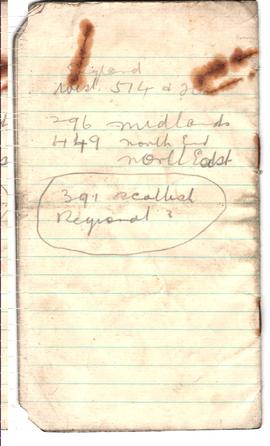 England
West. 514 &
296 midlands
449 north End
north East
391 scottish
Regional ?